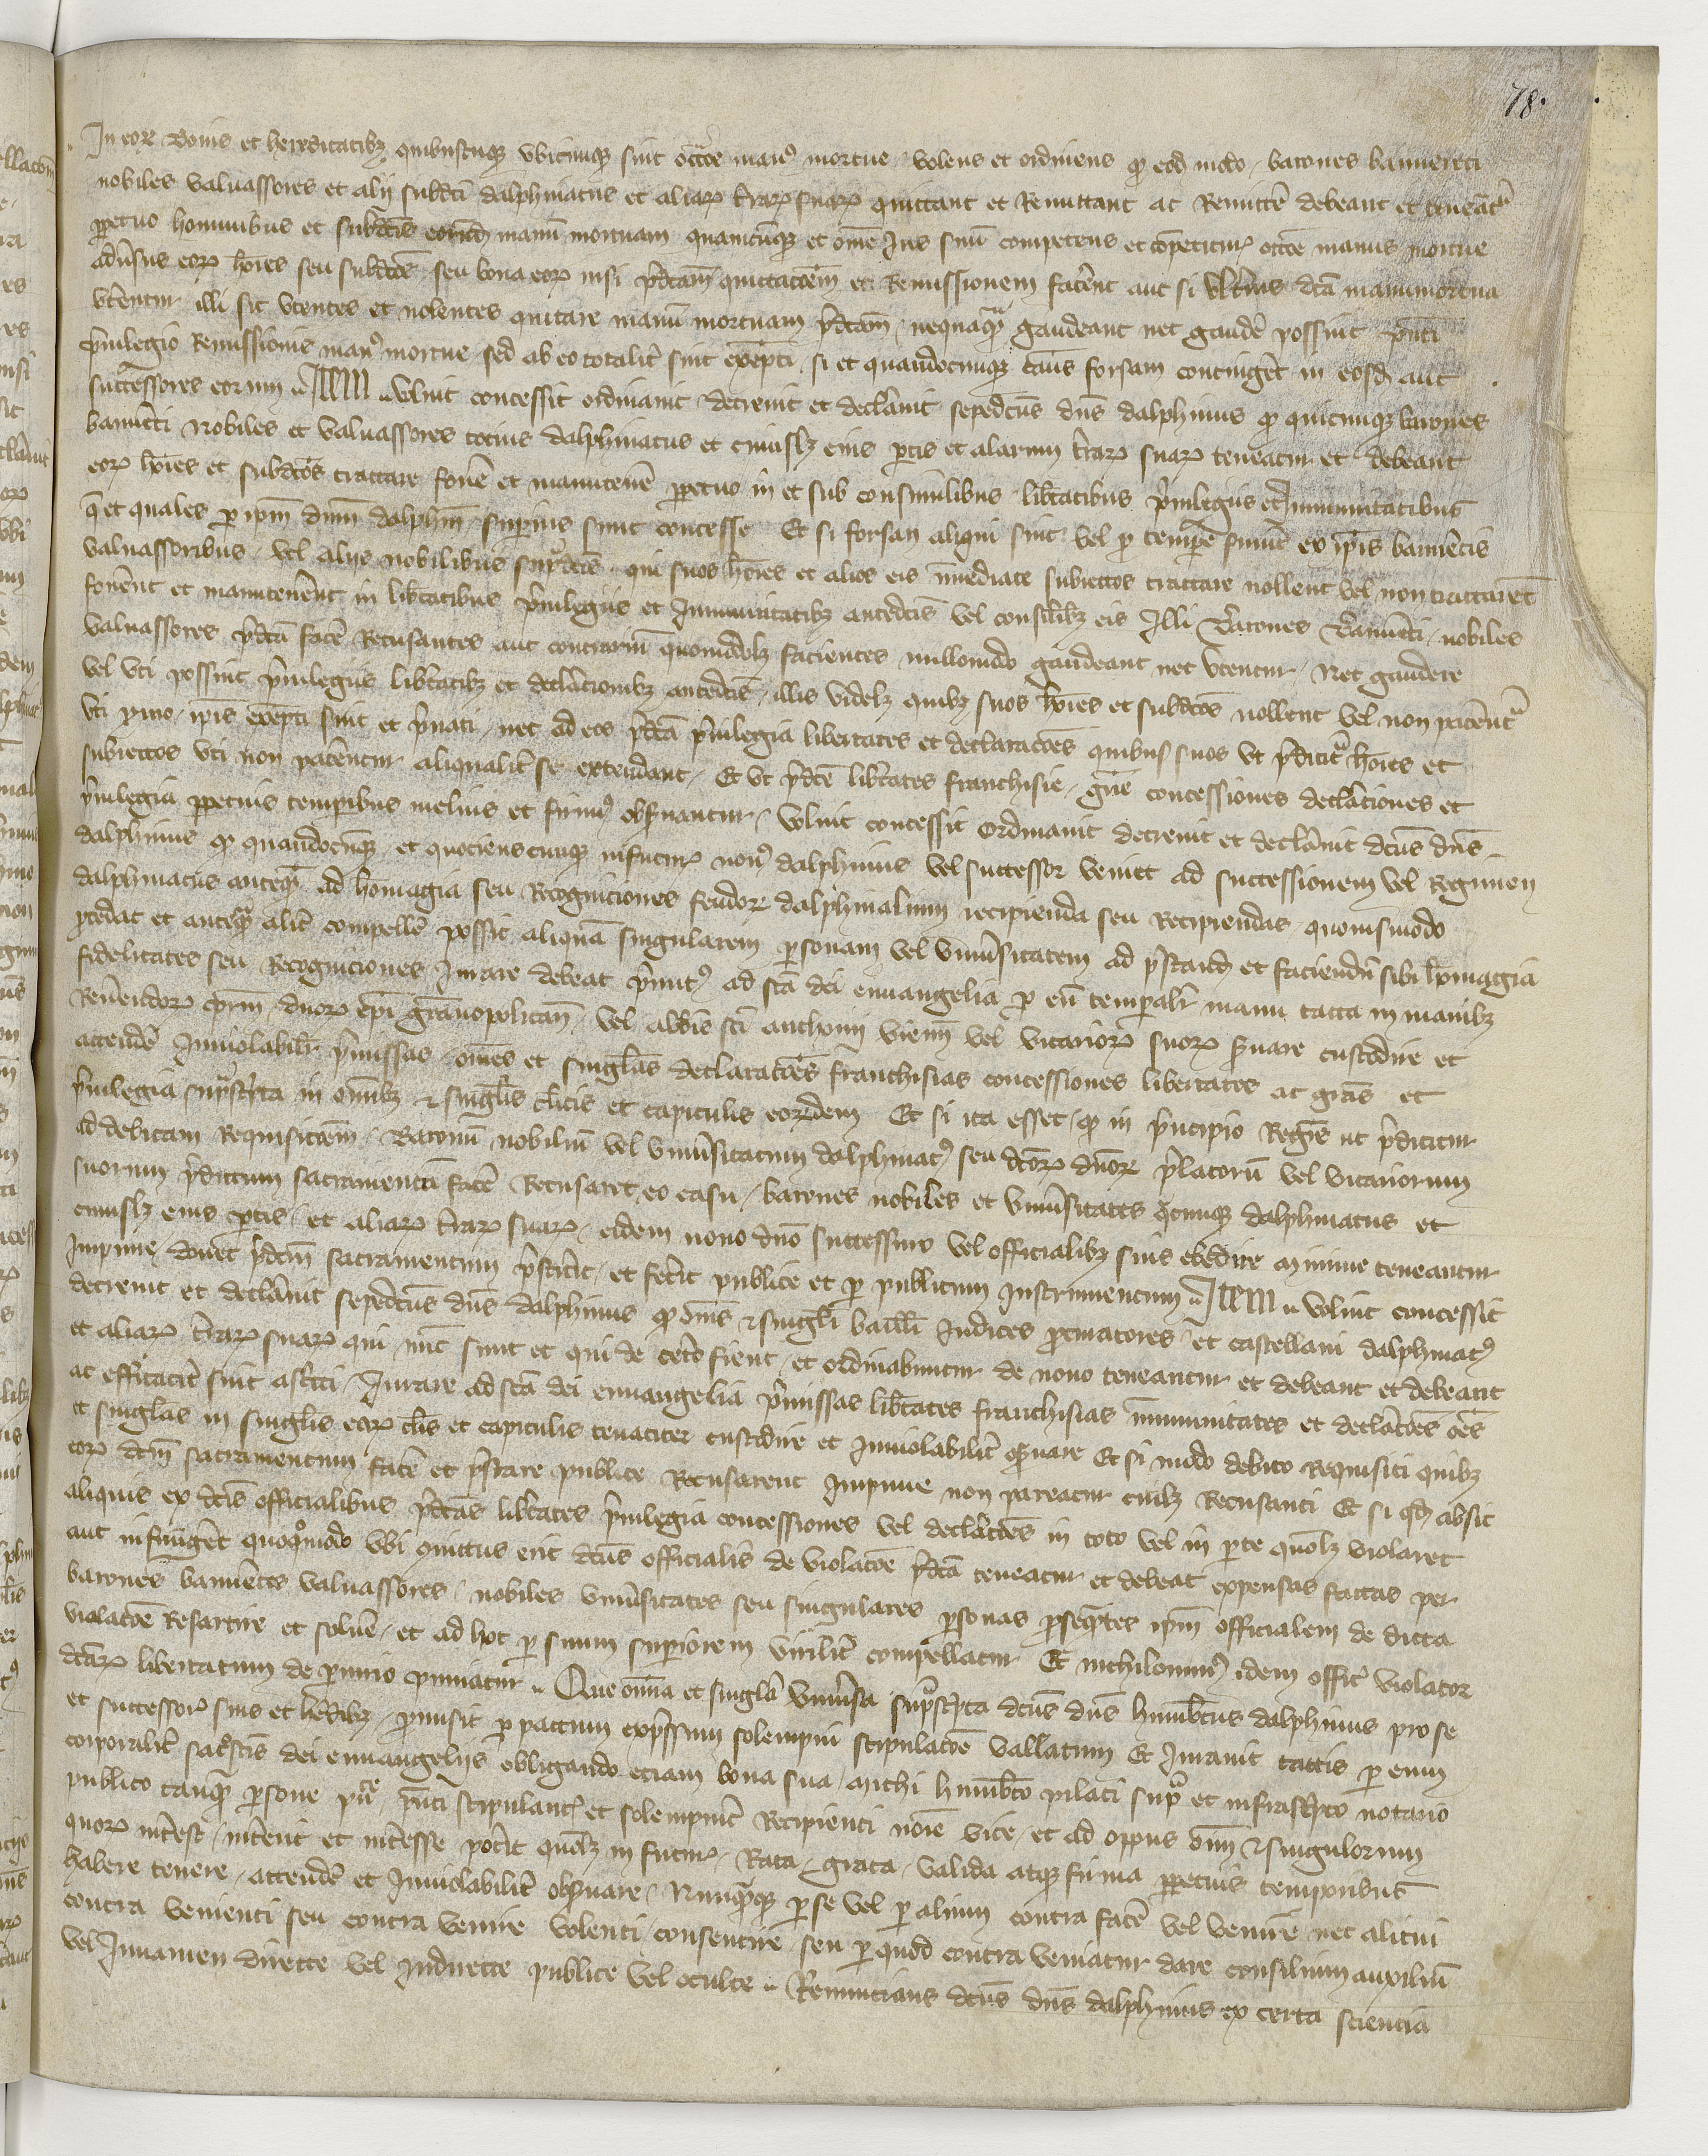 78.
In eorum bonis et hereditatibus quibuscumque ubicumque sint occasione manus mortue. Volens et ordinens quod eodem modo barones bannereti
nobiles valvassores et alii subditi dalphinatus et aliarum terrarum suarum quittent et Remittant ac Remittere debeant et teneantur
perpetuo hominibus et subditis eorumdem manum mortuam quamcumque et omne Jus suum competens et competiturum occasione manus mortue
adversus eorum homines seu subditos seu bona eorum nisi predictam quittacionem et Remissionem facerent aut si ulterius dicta manumortua
uterentur illi sic utentes et nolentes quitare manum mortuam predictam nequaquam gaudeant nec gaudere possint presenti
privilegio Remissionis manus mortue sed ab eo totaliter sint exempti si et quandocumque casus forsam contingeret in eosdem aut
successores eorum Item voluit concessit ordinavit decrevit et declaravit sepedictus dominus dalphinus quod quicumque barones
banereti Nobiles et valvassores totius dalphinatus et cuiuslibet eius partis et aliarum terrarum suarum teneantur et debeant
eorum homines et subditos tractare fovere et manutenere perpetuo in et sub consimilibus libertatibus privilegiis et Immunitatibus
que et quales per ipsum dominum dalphinum superius sunt concesse Et si forsan aliqui sint vel pro tempore fuerint ex ipsis banneretis
valvassoribus vel aliis nobilibus supradictis qui suos homines et alios eis immediate subiectos tractare nollent vel non tractarent
foverent et manutenerent in libertatibus privilegiis et Immunitatibus antedictis vel consimilibus eis Illi Barones Banereti nobiles
valvassores predicta facere Recusantes aut contrarium quomodolibet facientes nullomodo gaudeant nec utentur Nec gaudere
vel uti possint privilegiis libertatibus et declarationibus antedictis illis videlicet quibus suos homines et subditos nollent vel non paterentur
uti ymo ipsis exempti sint et privati nec ad eos predicta privilegia libertates et declaraciones quibus suos ut predicitur homines et
subiectos uti non paterentur aliqualiter se extendant Et ut predicte libertates franchisie gratie concessiones declarationes et
privilegia perpetuis temporibus melius et firmius observantur Voluit concessit Ordinavit decrevit et declaravit dictus dominus
dalphinus quod quandocumque et quocienscumque infuturum novus dalphinus vel successor veniet ad successionem vel Regimen
dalphinatus antequam ad homagia seu Recogniciones feudorum dalphinalium recipienda seu Recipiendas quovismodo
procedat et antequam aliter compellere possit aliquam singularem personam vel universitatem ad prestandum et faciendum sibi homagia
fidelitates seu Recogniciones Jurare debeat primitus ad sancta dei euuangelia per eum corporaliter manu tacta in manibus
Reverendorum patrum dominorum episcopi gratianopolitani vel abbatis sancti anthonii viennensis vel vicariorum suorum servare custodire et
attendere Inviolabiliter premissas omnes et singulas declaraciones franchisias concessiones libertates ac gratias et
privilegia suprascripta in omnibus et singulis clausis et capitulis eorumdem Et si ita esset quod in principio Regiminis ut predicitur
ad debitam Requisicionem Baronum nobilium vel universitatum dalphinatus seu dictorum dominorum prelatorum vel vicariorum
suorum predictum sacramentum facere Recusaret eo casu barones nobiles et universitates quecumque dalphinatus et
cuiuslibet eius partis et aliarum terrarum suarum eidem novo domino successuro vel officialibus suis obedire minime teneantur
Impune donec predictum sacramentum prestiterit et fecerit publice et per publicum Instrumentum Item voluit concessit
decrevit et declaravit sepedictus dominus dalphinus quod omnes et singuli baillivi Judices procuratores et castellani dalphinatus
et aliarum terrarum suarum qui nunc sunt et qui de cetero fient et ordinabuntur de novo teneantur et debeant et debeant
ac efficaciter sint astricti Jurare ad sancta dei euuangelia premissas libertates franchisias immunitates et declaraciones omnes
et singulas in singulis eorum clausis et capitulis tenaciter custodire et Inviolabiliter observare Et si modo debito Requisiti quilibet
eorum dictum sacramentum facere et prestare publice Recusarent Impune non pareatur cuilibet Recusanti Et si quod absit
aliquis ex dictis officialibus predictas libertates privilegia concessiones vel declaraciones in toto vel in parte quomodolibet violaret
aut infringeret quoquomodo ubi convictus erit dictus officialis de violacione predicta teneatur et debeat expensas factas per
barones banneretos valvassores nobiles universitates seu singulares personas prosequentes ipsum officialem de dicta
violacione Resarcire et solvere et ad hoc per suum superiorem viriliter compellatur Et nichilominus idem officialis violator
dictarum libertatum de periurio puniatur Que omnia et singula universa suprascripta dictus dominus humbertus dalphinus pro se
et successoribus suis et heredibus promisit per pactum expressum solempni stipulacione vallatum Et Juravit tactis per eum
corporaliter sacrosanctis dei euuangeliis obligando etiam bona sua michi humberto pilati supra et infrascripto notario
publico tanquam persone publice presenti stipulanti et solempniter Recipienti nomine vice et ad oppus omnium et singulorum
quorum interest intererit et interesse poterit quomodolibet in futurum Rata grata valida atque firma perpetuis temporibus
habere tenere attendere et Inviolabiliter observare Nunquamque per se vel per alium contra facere vel venire nec alicui
contra venienti seu contra venire volenti consentire seu per quod contra veniatur dare consilium auxilium
vel Juvamen directe vel Indirecte publice vel oculte Renuncians dictus dominus dalphinus ex certa sciencia